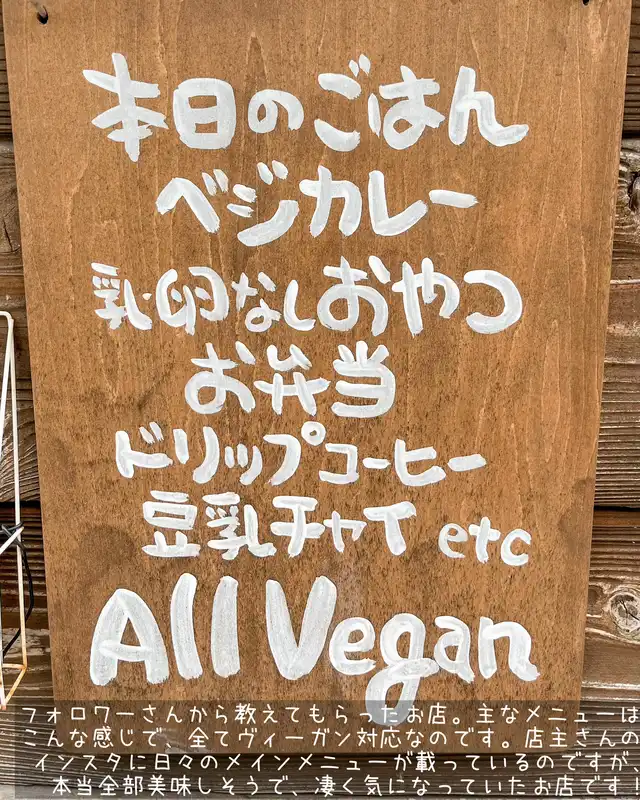 本日のごはん
ベジカレー
乳・卵なしおやつ
お弁当
ドリップコーヒー
豆乳チャイ etc
All Vegan
フォロワーさんから教えてもらったお店。主なメニューは
こんな感じで、全てヴィーガン対応なのです。店主さんの
インスタに日々のメインメニューが載っているのですが、
本当全部美味しそうで、凄く気になっていたお店です！